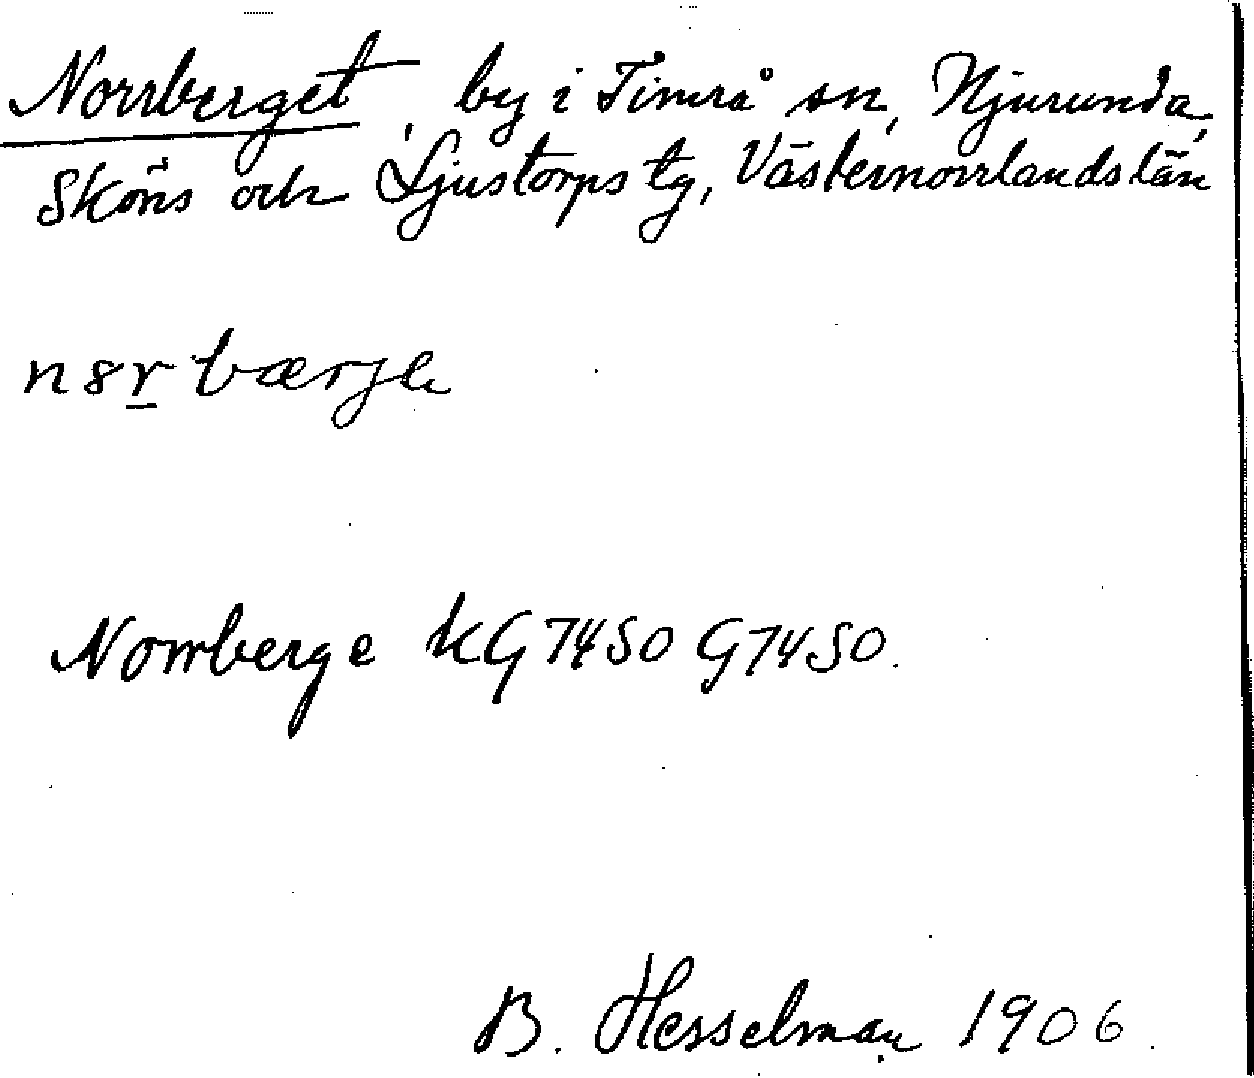 Norrberget, by i Timrå sn, Njurunda,
Sköns och Ljustorps tg, Västernorrlands län
n8r bærje
Norrberge KG 7450 G 7450.
B. Hesselman 1906.